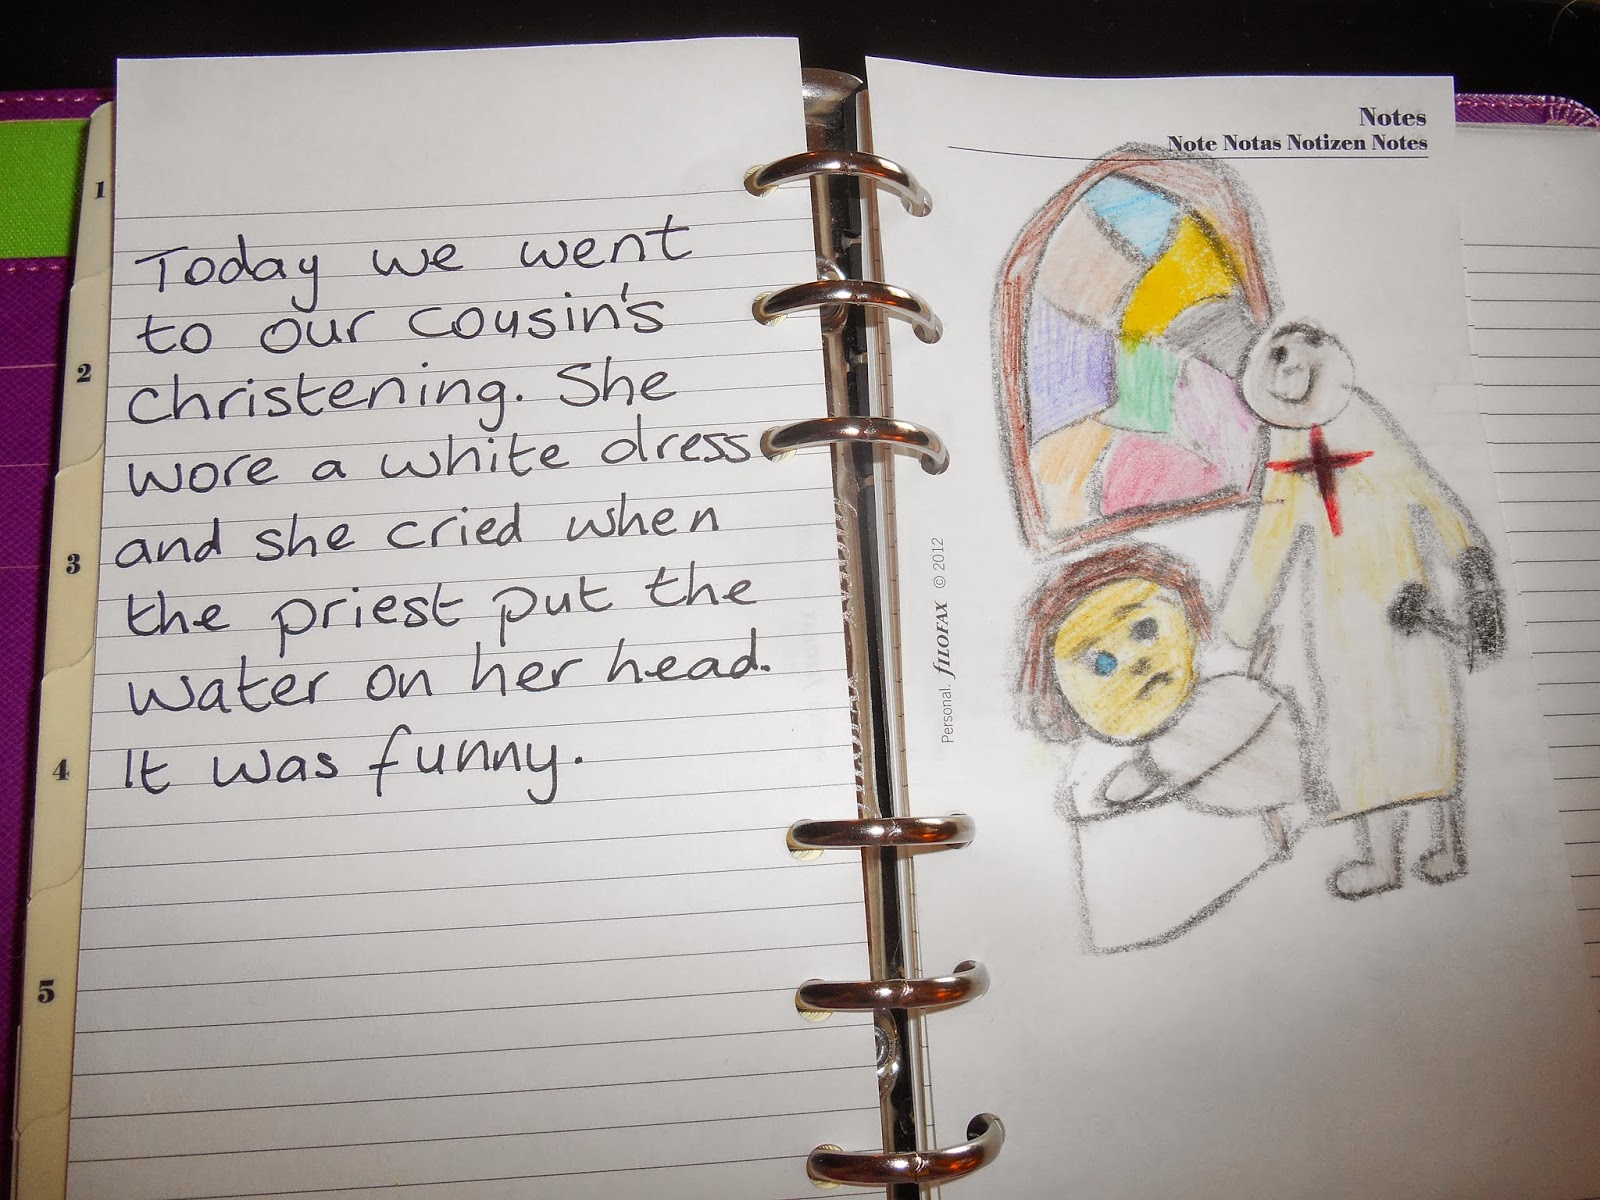 Today we went
to our cousin's
christening. She
wore a white dress
and she cried when
the priest put the
water on her head.
It was funny.
1
2
3
4
5
Notes
Note Notas Notizen Notes
Personal. FILOFAX © 2012